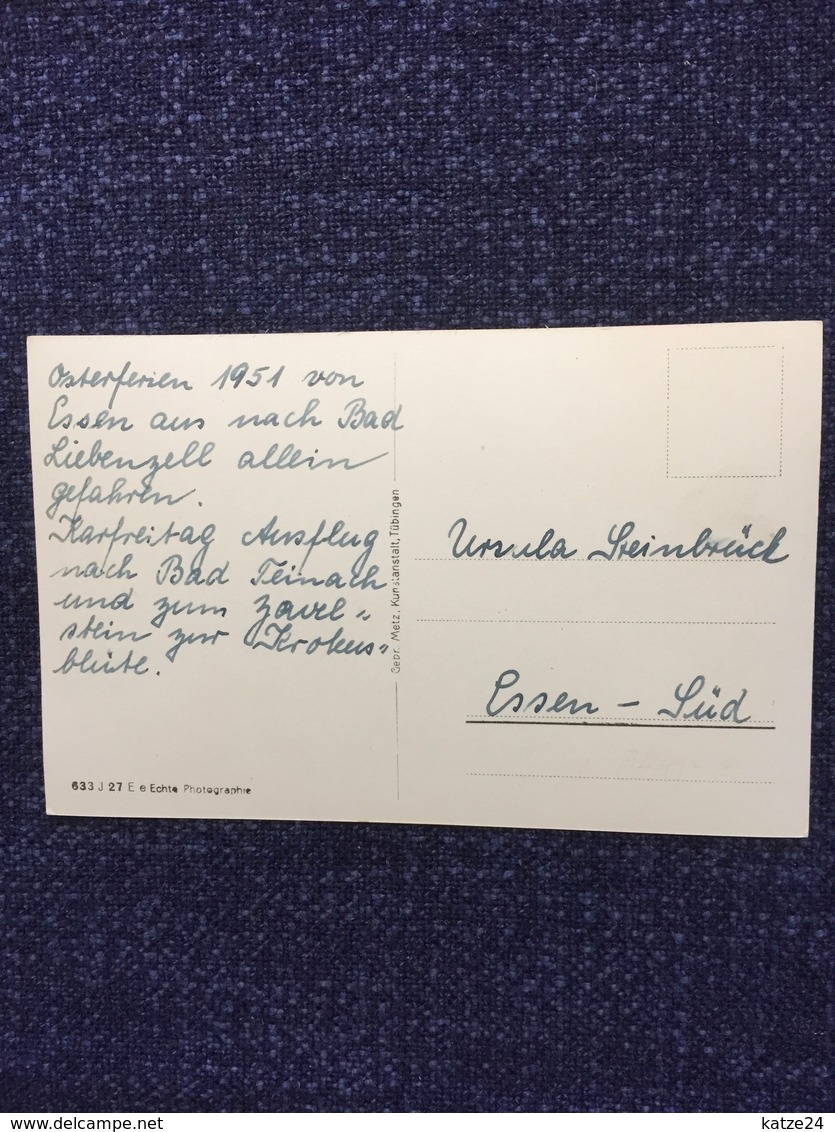 Osterferien 1951 von
Essen aus nach Bad
Liebenzell allein
gefahren.
Karfreitag Ausflug
nach Bad Teinach
und zum Zavel„
stein zur Krokus„
blüte.
633 J 27 E e Echte Photographie
Gebr. Metz, Kunstanstalt, Tübingen
Ursula Steinbrück
Essen – Süd
www.delcampe.net
katze24